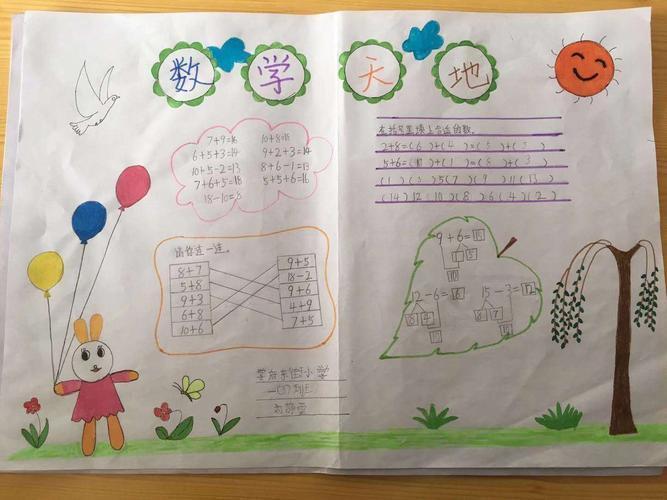 数学天地
7+9=16
10+8=18
6+5+3=14
9+2+3=14
10+5-2=13
8+6-1=13
7+6+5=18
5+5+6=16
18-10=8
8+7
5+8
9+3
6+8
10+6
9+5
18-2
9+6
4+9
7+5
在括号里填上合适的数。
2+8=(6)+(4)=(5)+(5)
5+6=(10)+(1)=(8)+(3)
(1)(3)5(7)(9)11(13)
(14)12(10)(8)6(4)(2)
9+6=15
1 5
10
12-6=6
8 4
10
15-3=12
小学